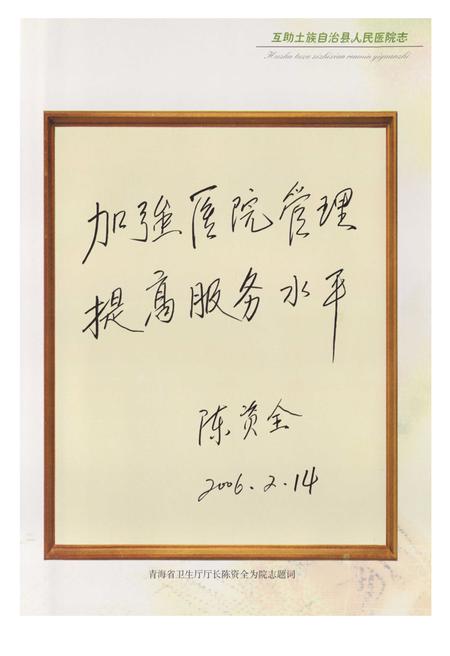 互助土族自治县人民医院志
Huzhu tuzu zizhixian renmin yiyuanzhi
加强医院管理
提高服务水平
陈资全
2006.2.14
青海省卫生厅厅长陈资全为院志题词